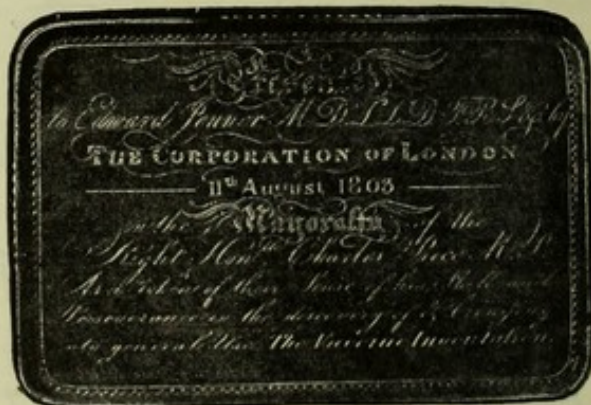 Presented
to Edward Jenner M.D. L.L.D. F.R.S. &c. by
THE CORPORATION OF LONDON
11th August 1803
in the Mayoralty of the
Right Honble Charles Price M.P.
As a Token of their Sense of his Skill and
Perseverance in the discovery of & bringing
into general Use The Vaccine Inoculation